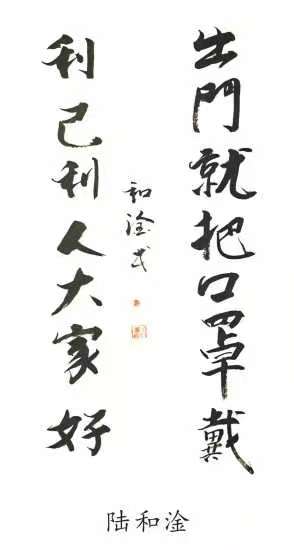 出門就把口罩戴
利己利人大家好
和淦书
陆和淦